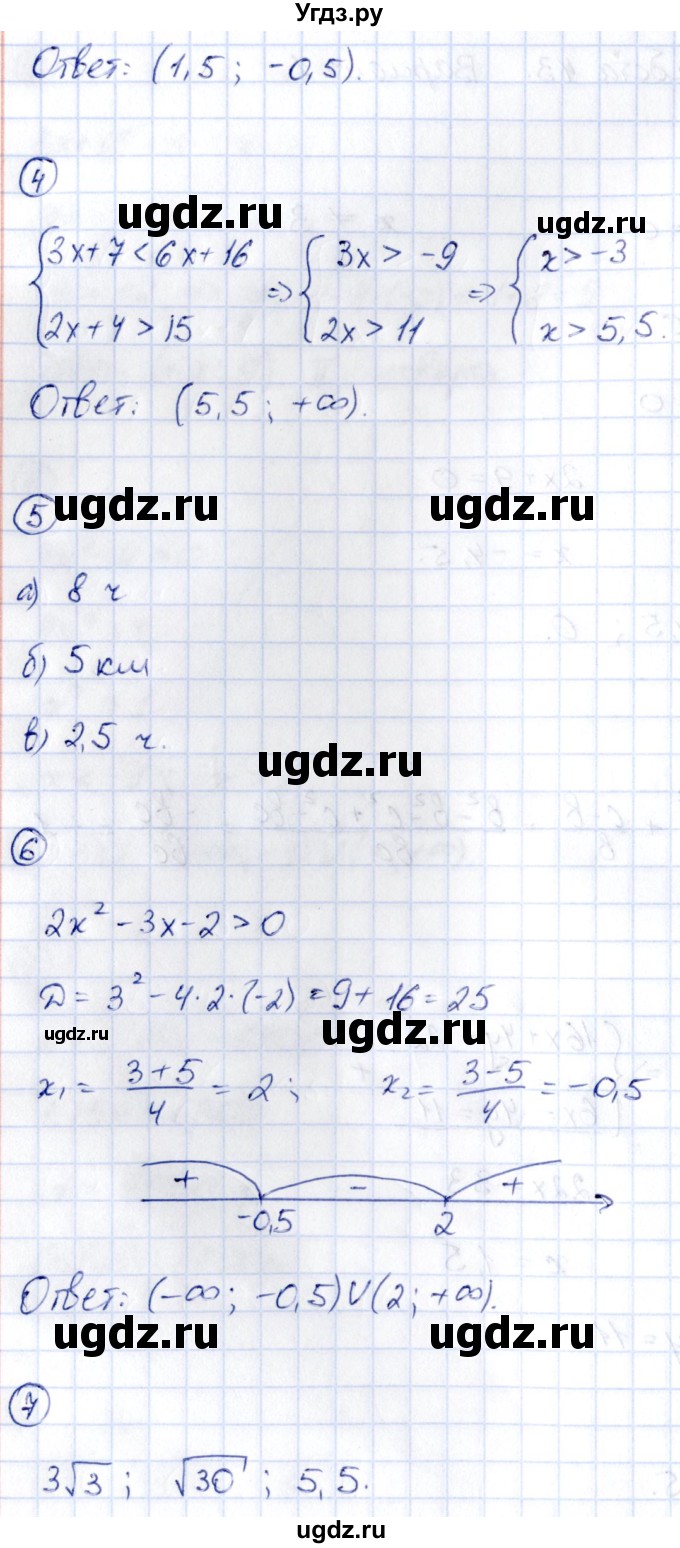 Угдз.ру
Ответ: (1,5; -0,5).
4
ugdz.ru
ugdz.ru
{3x+7<6x+16 => {3x>-9 => {x>-3
{2x+4>15 {2x>11 {x>5,5.
Ответ: (5,5; +∞).
5
ugdz.ru ugdz.ru
а) 8 ч
б) 5 км
в) 2,5 ч.
ugdz.ru
6
2x² - 3x - 2 > 0
Д = 3² - 4·2·(-2) = 9 + 16 = 25
ugdz.ru ugdz.ru
x₁ = (3+5)/4 = 2; x₂ = (3-5)/4 = -0,5
+ - +
-0,5 2
Ответ: (-∞; -0,5)∪(2; +∞).
ugdz.ru ugdz.ru
7
3√3; √30; 5,5.
ugdz.ru
ugdz.ru